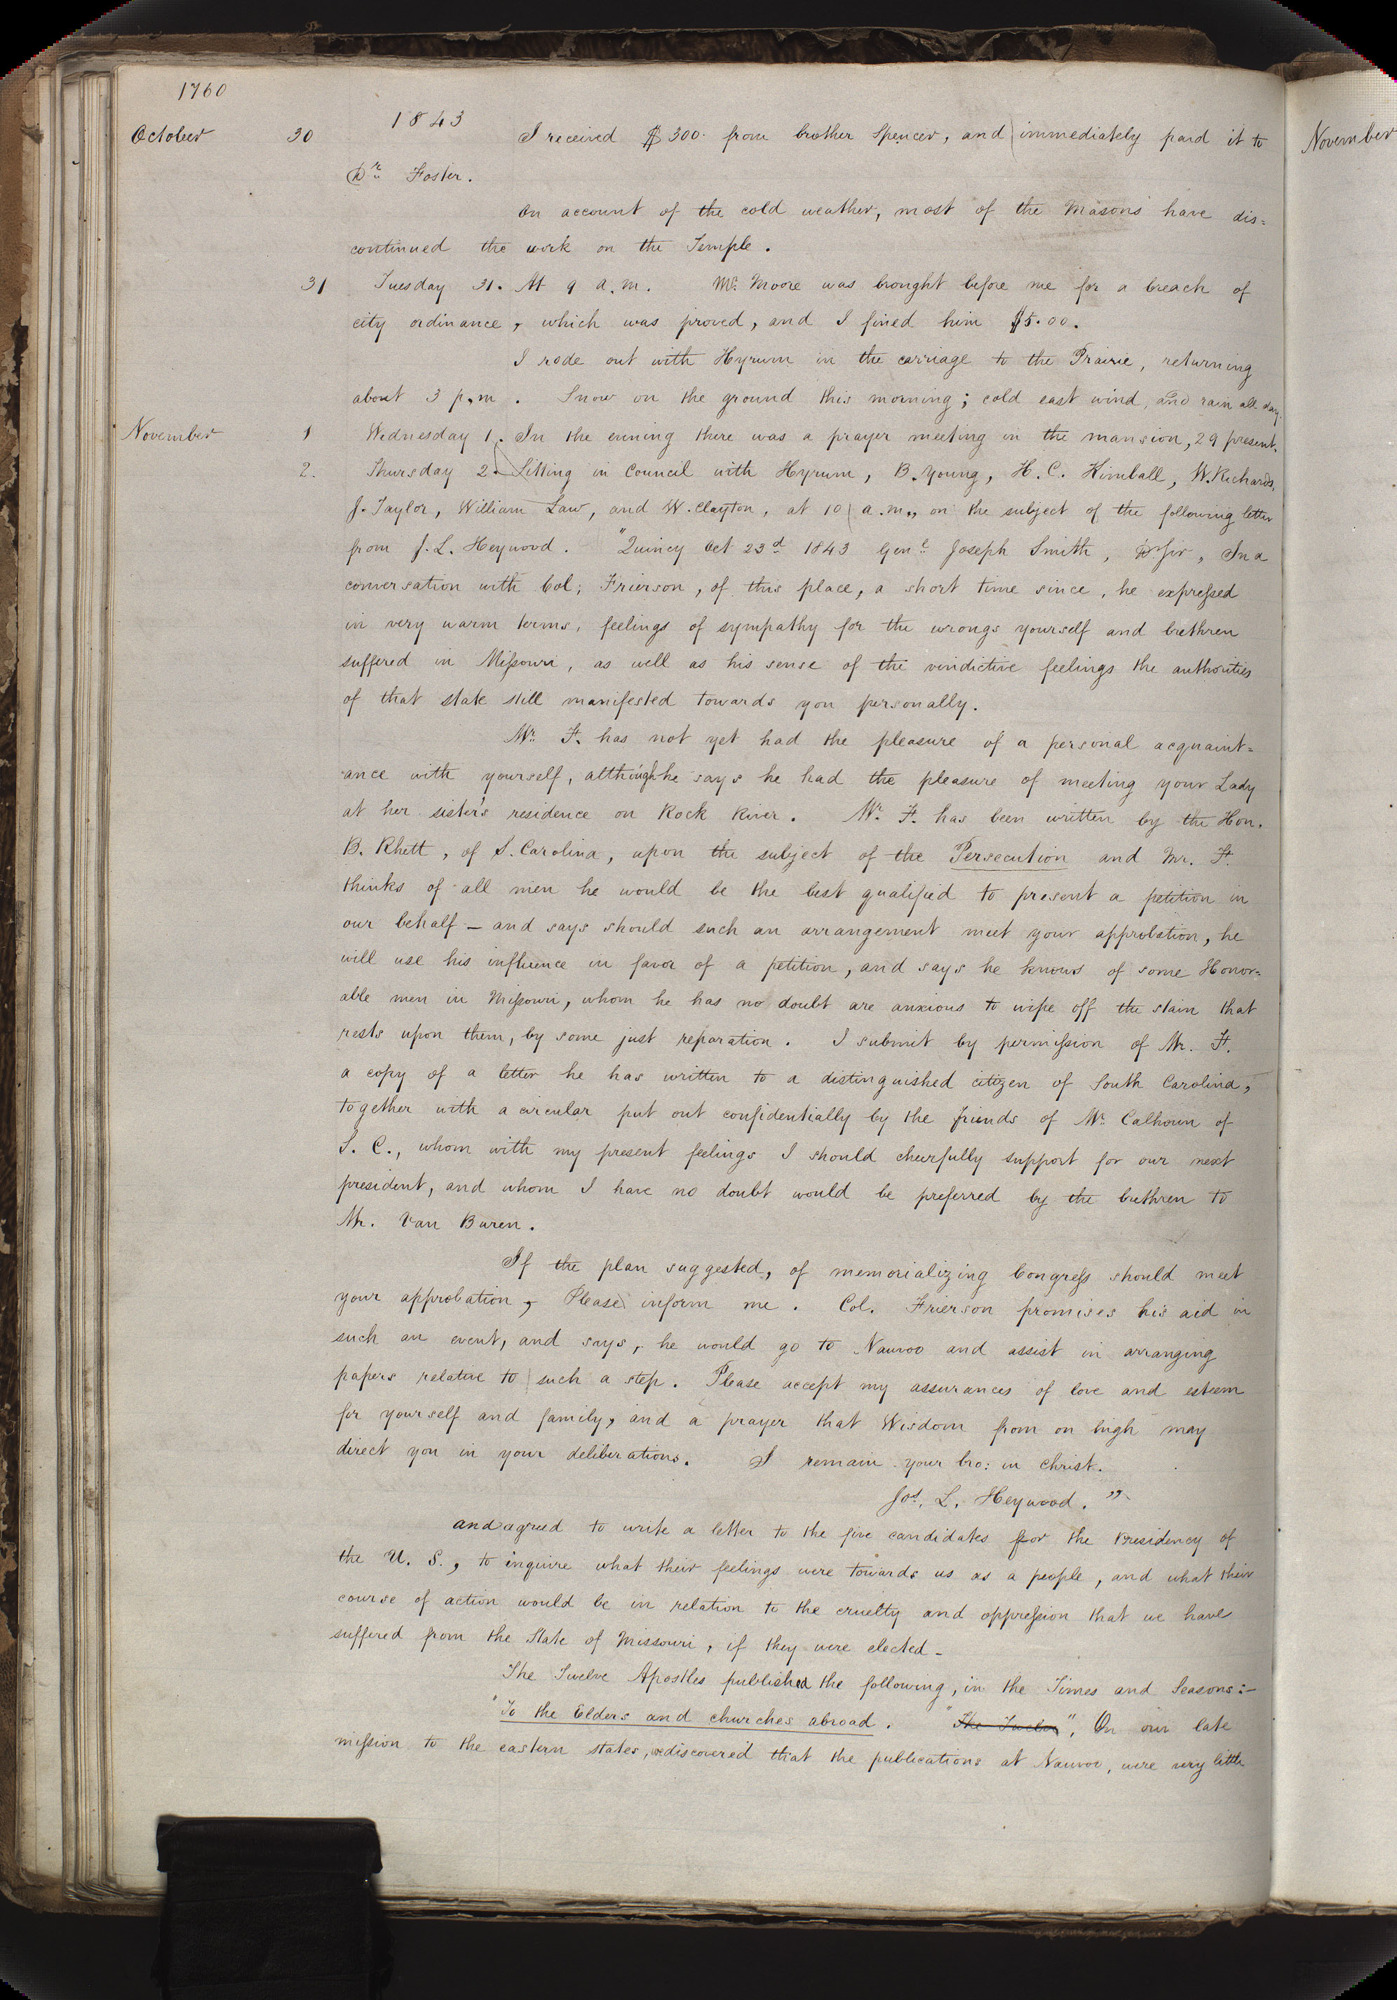 1760
1843
October 30 I received $300. from brother Spencer, and immediately paid it to
Dr. Foster.
On account of the cold weather, most of the Masons have dis=
continued the work on the Temple.
31 Tuesday 31. At 9 a.m. Mr. Moore was brought before me for a breach of
city ordinance, which was proved, and I fined him $5.00.
I rode out with Hyrum in the carriage to the Prairie, returning
about 3 p.m. Snow on the ground this morning; cold east wind, and rain all day.
November 1 Wednesday 1. In the evening there was a prayer meeting in the mansion, 29 present.
2. Thursday 2. Sitting in Council with Hyrum, B. Young, H. C. Kimball, W. Richards,
J. Taylor, William Law, and W. Clayton, at 10 a.m., on the subject of the following letter
from J. L. Heywood. "Quincy Oct 23d 1843 Genl Joseph Smith, Dr Sir, In a
conversation with Col; Frierson, of this place, a short time since, he expressed
in very warm terms, feelings of sympathy for the wrongs yourself and brethren
suffered in Missouri, as well as his sense of the vindictive feelings the authorities
of that state still manifested towards you personally.
Mr. F. has not yet had the pleasure of a personal acquaint=
ance with yourself, although he says he had the pleasure of meeting your Lady
at her sister's residence on Rock River. Mr. F. has been written by the Hon.
B. Rhett, of S. Carolina, upon the subject of the Persecution and Mr. F.
thinks of all men he would be the best qualified to present a petition in
our behalf — and says should such an arrangement meet your approbation, he
will use his influence in favor of a petition, and says he knows of some Honor=
able men in Missouri, whom he has no doubt are anxious to wipe off the stain that
rests upon them, by some just reparation. I submit by permission of Mr. F.
a copy of a letter he has written to a distinguished citizen of South Carolina,
together with a circular put out confidentially by the friends of Mr. Calhoun of
S. C., whom with my present feelings I should cheerfully support for our next
president, and whom I have no doubt would be preferred by the brethren to
Mr. Van Buren.
If the plan suggested, of memorializing Congress should meet
your approbation, Please inform me. Col. Frierson promises his aid in
such an event, and says, he would go to Nauvoo and assist in arranging
papers relative to such a step. Please accept my assurances of love and esteem
for yourself and family, and a prayer that Wisdom from on high may
direct you in your deliberations. I remain your bro: in Christ.
Jos. L. Heywood."
and agreed to write a letter to the five candidates for the Presidency of
the U. S., to inquire what their feelings were towards us as a people, and what their
course of action would be in relation to the cruelty and oppression that we have
suffered from the State of Missouri, if they were elected —
The Twelve Apostles published the following, in the Times and Seasons:—
"To the Elders and churches abroad. "The Twelve", On our late
mission to the eastern states, we discovered that the publications at Nauvoo, were very little
November